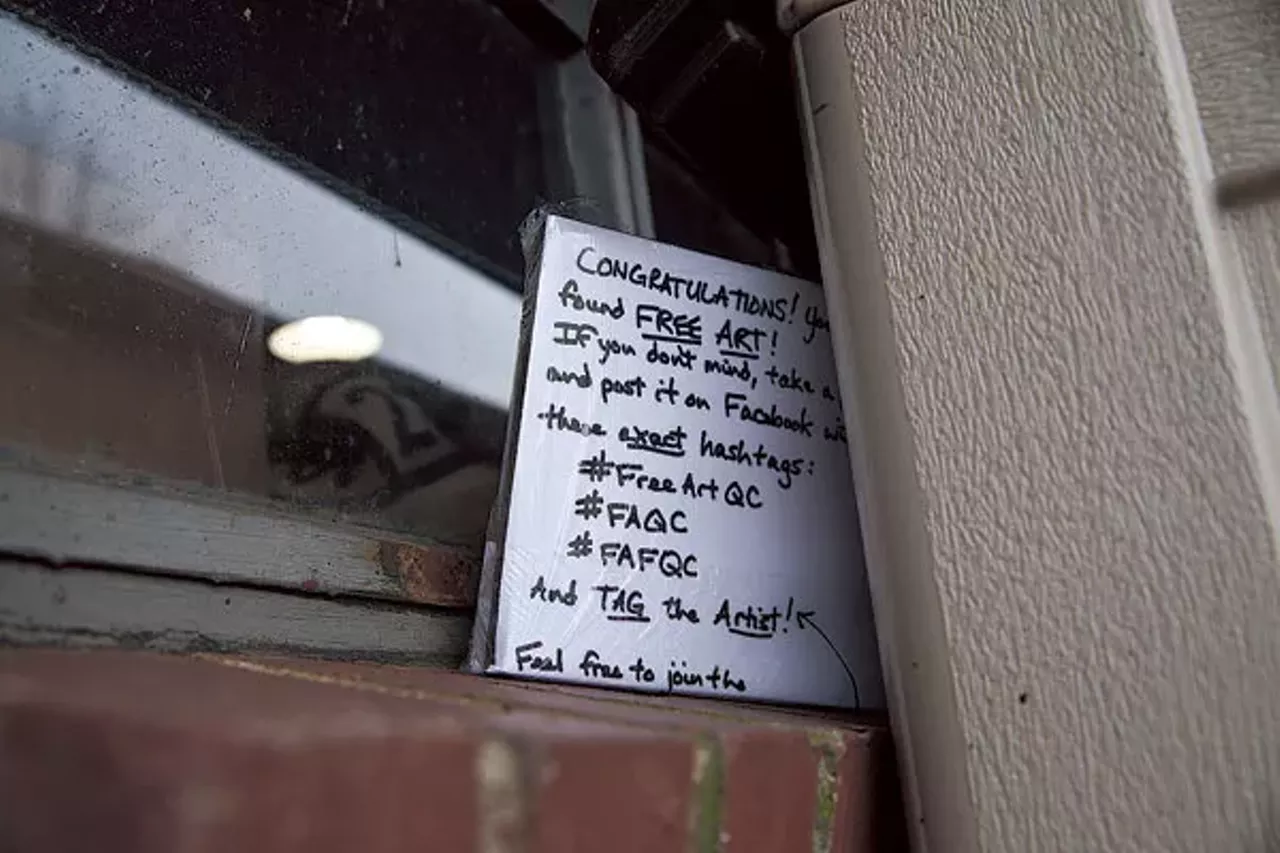 CONGRATULATIONS! You
found FREE ART!
If you don't mind, take a
and post it on Facebook
these exact hashtags:
#FreeArtQC
#FAQC
#FAFQC
And TAG the Artist!
Feel free to join the